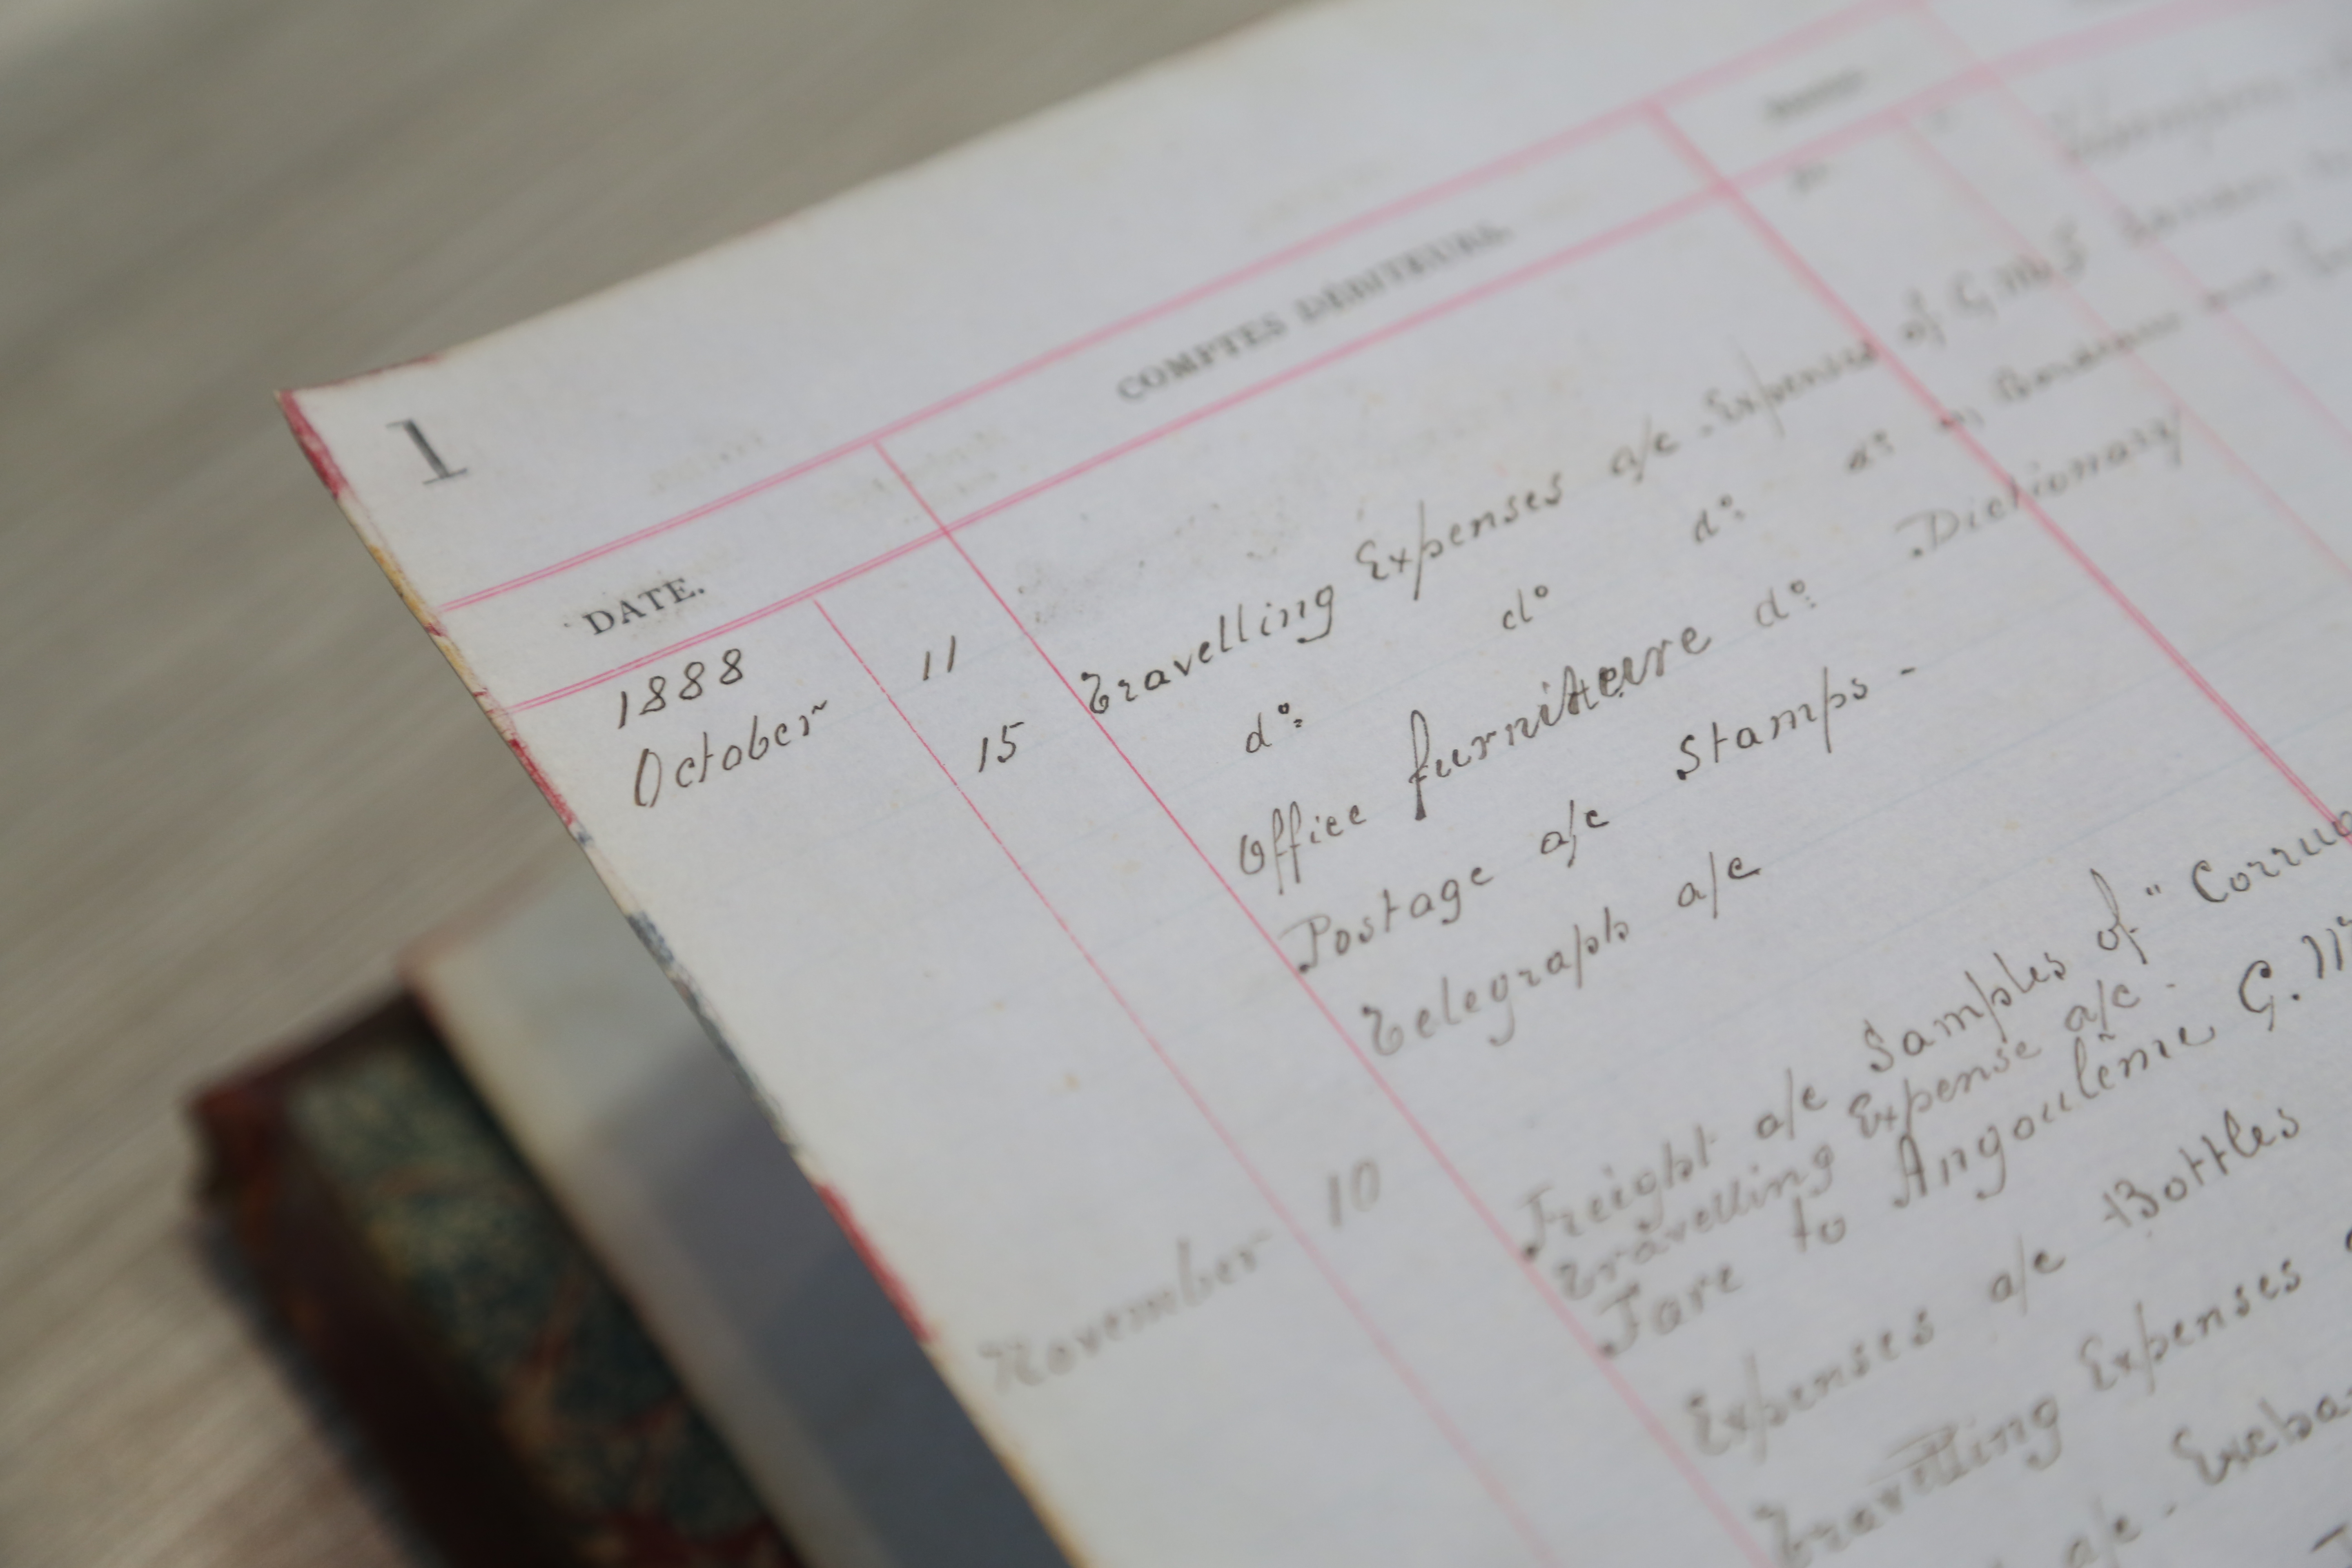 1
DATE.
COMPTES DÉBITEURS.
1888
October 11 Travelling Expenses a/c - Expenses of G.M.F
15 do: do do: do: in
Office furniture do: Dictionary
Postage a/c Stamps -
Telegraph a/c
November 10 Freight a/c Samples of "
Travelling Expense a/c -
Fare to Angoulême G.
Expenses a/c Bottles
Travelling Expenses
a/c -